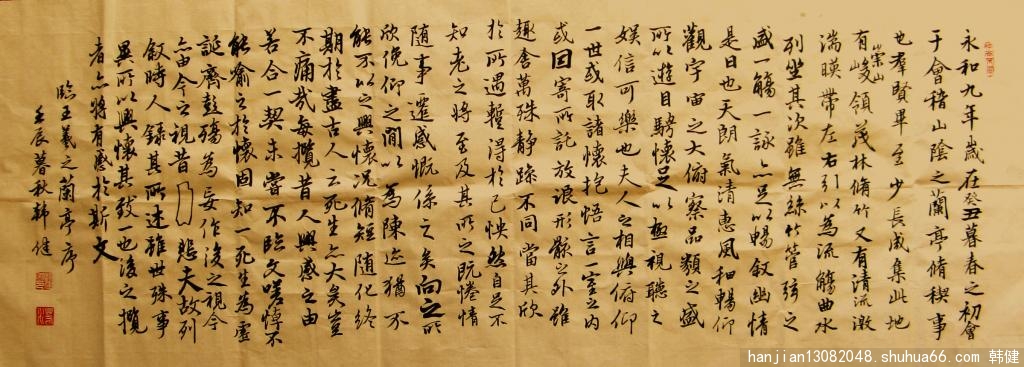 永和九年歲在癸丑暮春之初會
于會稽山陰之蘭亭脩稧事
也羣賢畢至少長咸集此地
有崇山峻領茂林脩竹又有清流激
湍暎帶左右引以為流觴曲水
列坐其次雖無絲竹管弦之
盛一觴一詠亦足以暢叙幽情
是日也天朗氣清惠風和暢仰
觀宇宙之大俯察品類之盛
所以遊目騁懷足以極視聽之
娛信可樂也夫人之相與俯仰
一世或取諸懷抱悟言一室之內
或因寄所託放浪形骸之外雖
趣舍萬殊靜躁不同當其欣
於所遇暫得於己怏然自足不
知老之將至及其所之既惓情
随事遷感慨係之矣向之所
欣俛仰之間以為陳迹猶不
能不以之興懷況脩短随化終
期於盡古人云死生亦大矣豈
不痛哉每攬昔人興感之由
若合一契未嘗不臨文嗟悼不
能喻之於懷固知一死生為虛
誕齊彭殤為妄作後之視今
亦由今之視昔悲夫故列
叙時人錄其所述雖世殊事
異所以興懷其致一也後之攬
者亦將有感於斯文
臨王羲之蘭亭序
壬辰暮秋韓健
hanjian13082048.shuhua66.com 韩健